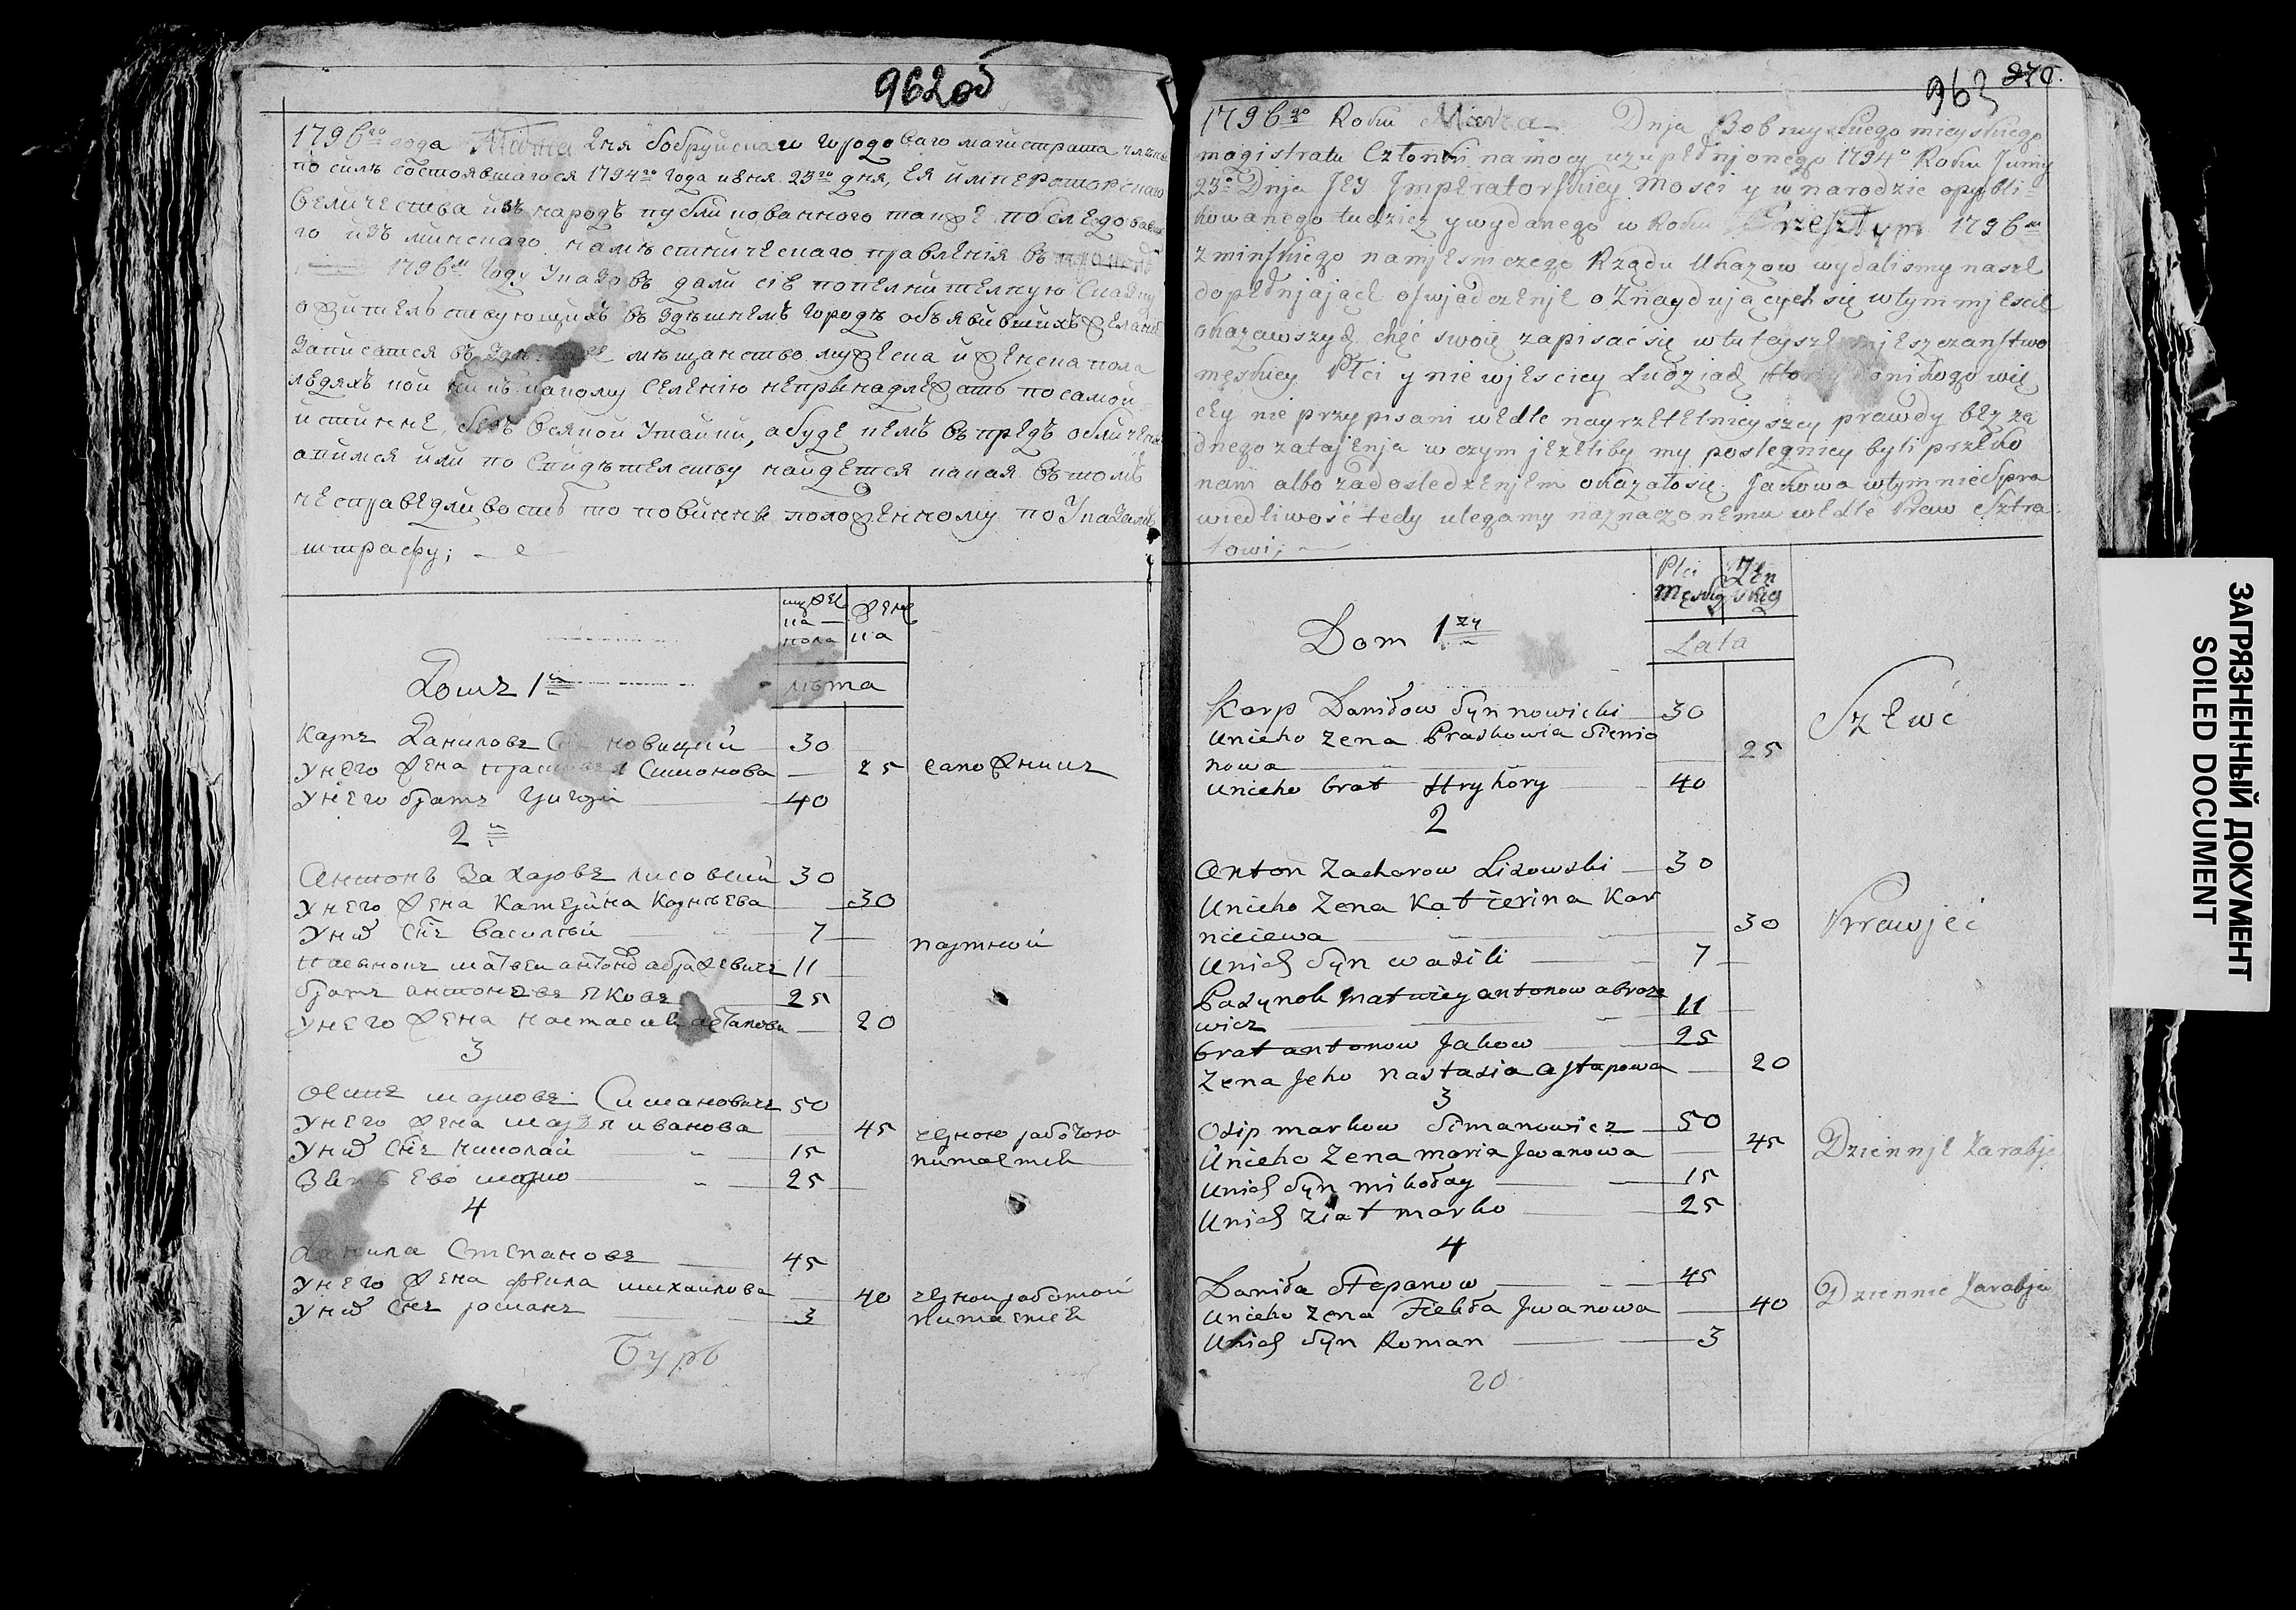 962об
1796го года Марта дня бобруйскаго городоваго магистрата члены
по силѣ состоявшагося 1794го года июня 23го дня, ея императорскаго
величества и въ народъ публикованного также последовавша
го изъ минскаго намѣстническаго правленія въ
1796м году указовъ дали сіе пополнителную сказку
о жителствующихъ въ здѣшнемъ городѣ объявившихъ желаніе
записатся въ мѣщанство мужеска и женска пола
людяхъ кои никъ какому селенію непринадлежатъ по самой
истинне, безъ всякой утайки, а буде кемъ въ предъ обличен
окажимся или по свидѣтелству найдется какая въ томъ
несправедливость то повинны положенному по указамъ
штрафу;
мужес ка пола
женс ка
лѣта
Домъ 1й
Карпъ Даниловъ Снъ новицкий 30
у него жена Прасковья Симонова 25 сапожникъ
у него братъ григорій 40
2й
Антонъ Захаровъ лисовский 30
у него жена Катерина Корнѣева 30
у них Снъ василѣй 7 портной
Пасынокъ матвеи антонов абражевичъ 11
братъ антоновъ яковъ 25
у него жена настасия астапова 20
3
Осипъ марковъ Симановичъ 50
у него жена марья иванова 45 черною работою
у них Снъ николай 15 питается
Зять ево марко 25
4
Данила Степановъ 45
у него жена фекла михаилова 40 черной работой
у них Снъ романъ 3 питается
Бурб
963 970.
1796go Roku Marca Dnja Bobruyskiego mieyskiego
magistratu Członki na mocy uzupełnjonego 1794o Roku Junij
23o Dnja Jey Jmperatorskiey Mosci y w narodzie opybli
kowanego tudziez y wydanego w Roku Trzesztym 1796m
z minskiego namjesniczego Rządu Ukazow wydalismy nasze
dopełnjające oswjadczenje o znaydujących się wtym mjescie
okazawszych chęć swoię zapisać się w tuteysze mjeszczanstwo
męskiey Płci y niewjesciey Ludziach ktorzy do nikogo wię
cey nie przypisani wedle nayrzetelnieyszey prawdy bez za
dnego zatajenja w czym jezeliby my poslegniey byli przeko
nani albo za dosledzenjem okazało się Jakowa wtym nie Spra
wiedliwość tedy ulegamy naznaczonemu wedle Praw Sztra
fowi;
Płci Męskiey
Żen skiey
Lata
Dom 1szy
Karp Daniłow Syn nowicki 30 Szewc
unieho zena Praskowia Siemio
nowa 25
unieho brat Hryhory 40
2
Anton Zacharow Lisowski 30
Unieho Zena Katierina Kar
nieiewa 30 Krawjec
Unich Syn wasili 7
Pasynok Matwiey antonow abraze
wicz 11
brat antonow Jakow 25
Zena Jeho Nastasia Astapowa 20
3
Osip markow Simanowicz 50
Unieho Zena maria Jwanowa 45 Dziennje Zarabja
Unich Syn mikołay 15
Unich ziat marko 25
4
Daniła Stepanow 45
Unieho Zena Fiekła Jwanowa 40 Dziennie Zarabja
Unich Syn Roman 3
20
ЗАГРЯЗНЕННЫЙ ДОКУМЕНТ
SOILED DOCUMENT